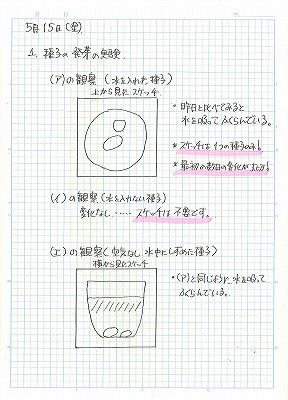 5月15日(金)
1. 種子の発芽の実験
(ア)の観察(水を入れた種子)
上から見たスケッチ
・昨日と比べてみると
水を吸ってふくらんでいる。
*スケッチは1つの種子のみ!
*最初の数日の変化が大切!
(イ)の観察(水を入れない種子)
変化なし……スケッチは不要です。
(エ)の観察(空気なし 水中にしずめた種子)
横から見たスケッチ
・(ア)と同じように水を吸って
ふくらんでいる。